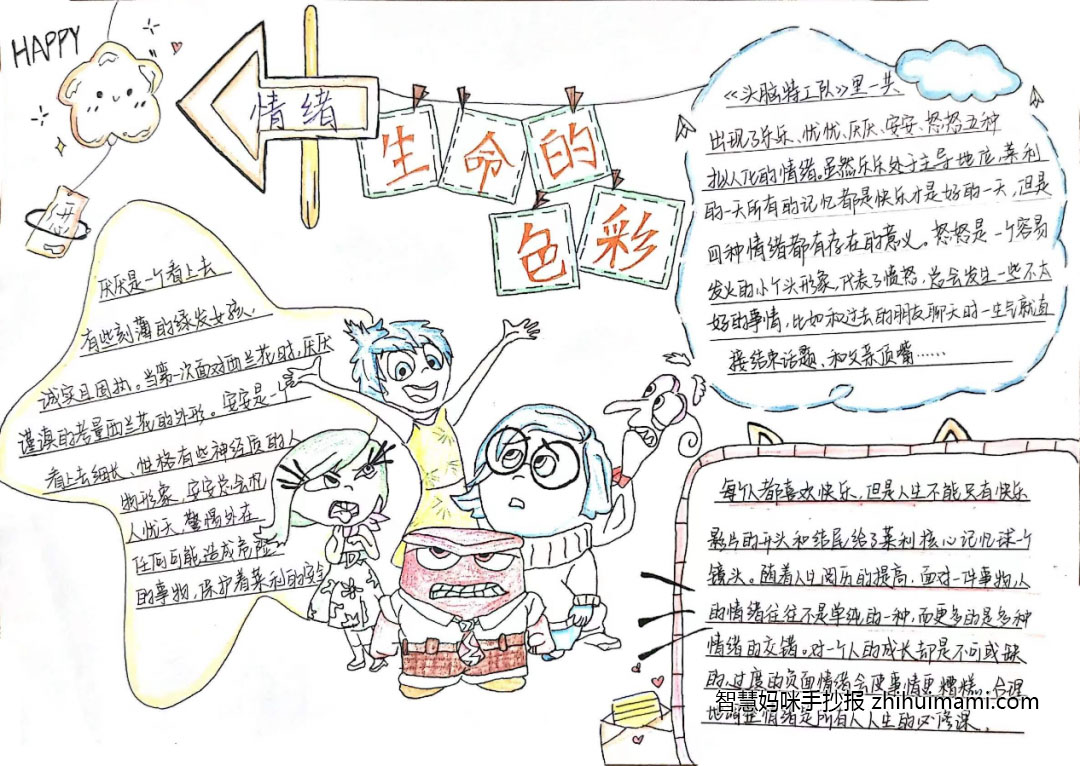 HAPPY
情绪
生命的
色彩
《头脑特工队》里一共
出现了乐乐、忧忧、厌厌、安安、怒怒五种
拟人化的情绪。虽然乐乐处于主导地位,莱利
的一天所有的记忆都是快乐才是好的一天,但是
四种情绪都有存在的意义。怒怒是一个容易
发火的小个头形象,代表了愤怒,总会发生一些不太
好的事情,比如和过去的朋友聊天时一生气就直
接结束话题、和父亲顶嘴……
厌厌是一个看上去
有些刻薄的绿发女孩,
诚实且固执。当第一次面对西兰花时,厌厌
谨慎的考量西兰花的外形。安安是一个
看上去细长、性格有些神经质的人
物形象,安安总会杞
人忧天,警惕外在
任何可能造成危险
的事物,保护着莱利的安全
每个人都喜欢快乐,但是人生不能只有快乐
影片的开头和结尾给了莱利核心记忆球一个
镜头。随着人生阅历的提高,面对一件事物,人
的情绪往往不是单纯的一种,而更多的是多种
情绪的交错。对一个人的成长都是不可或缺
的,过度的负面情绪会使事情更糟糕,合理
地调整情绪是所有人人生的必修课.
智慧妈咪手抄报 zhihuimami.com